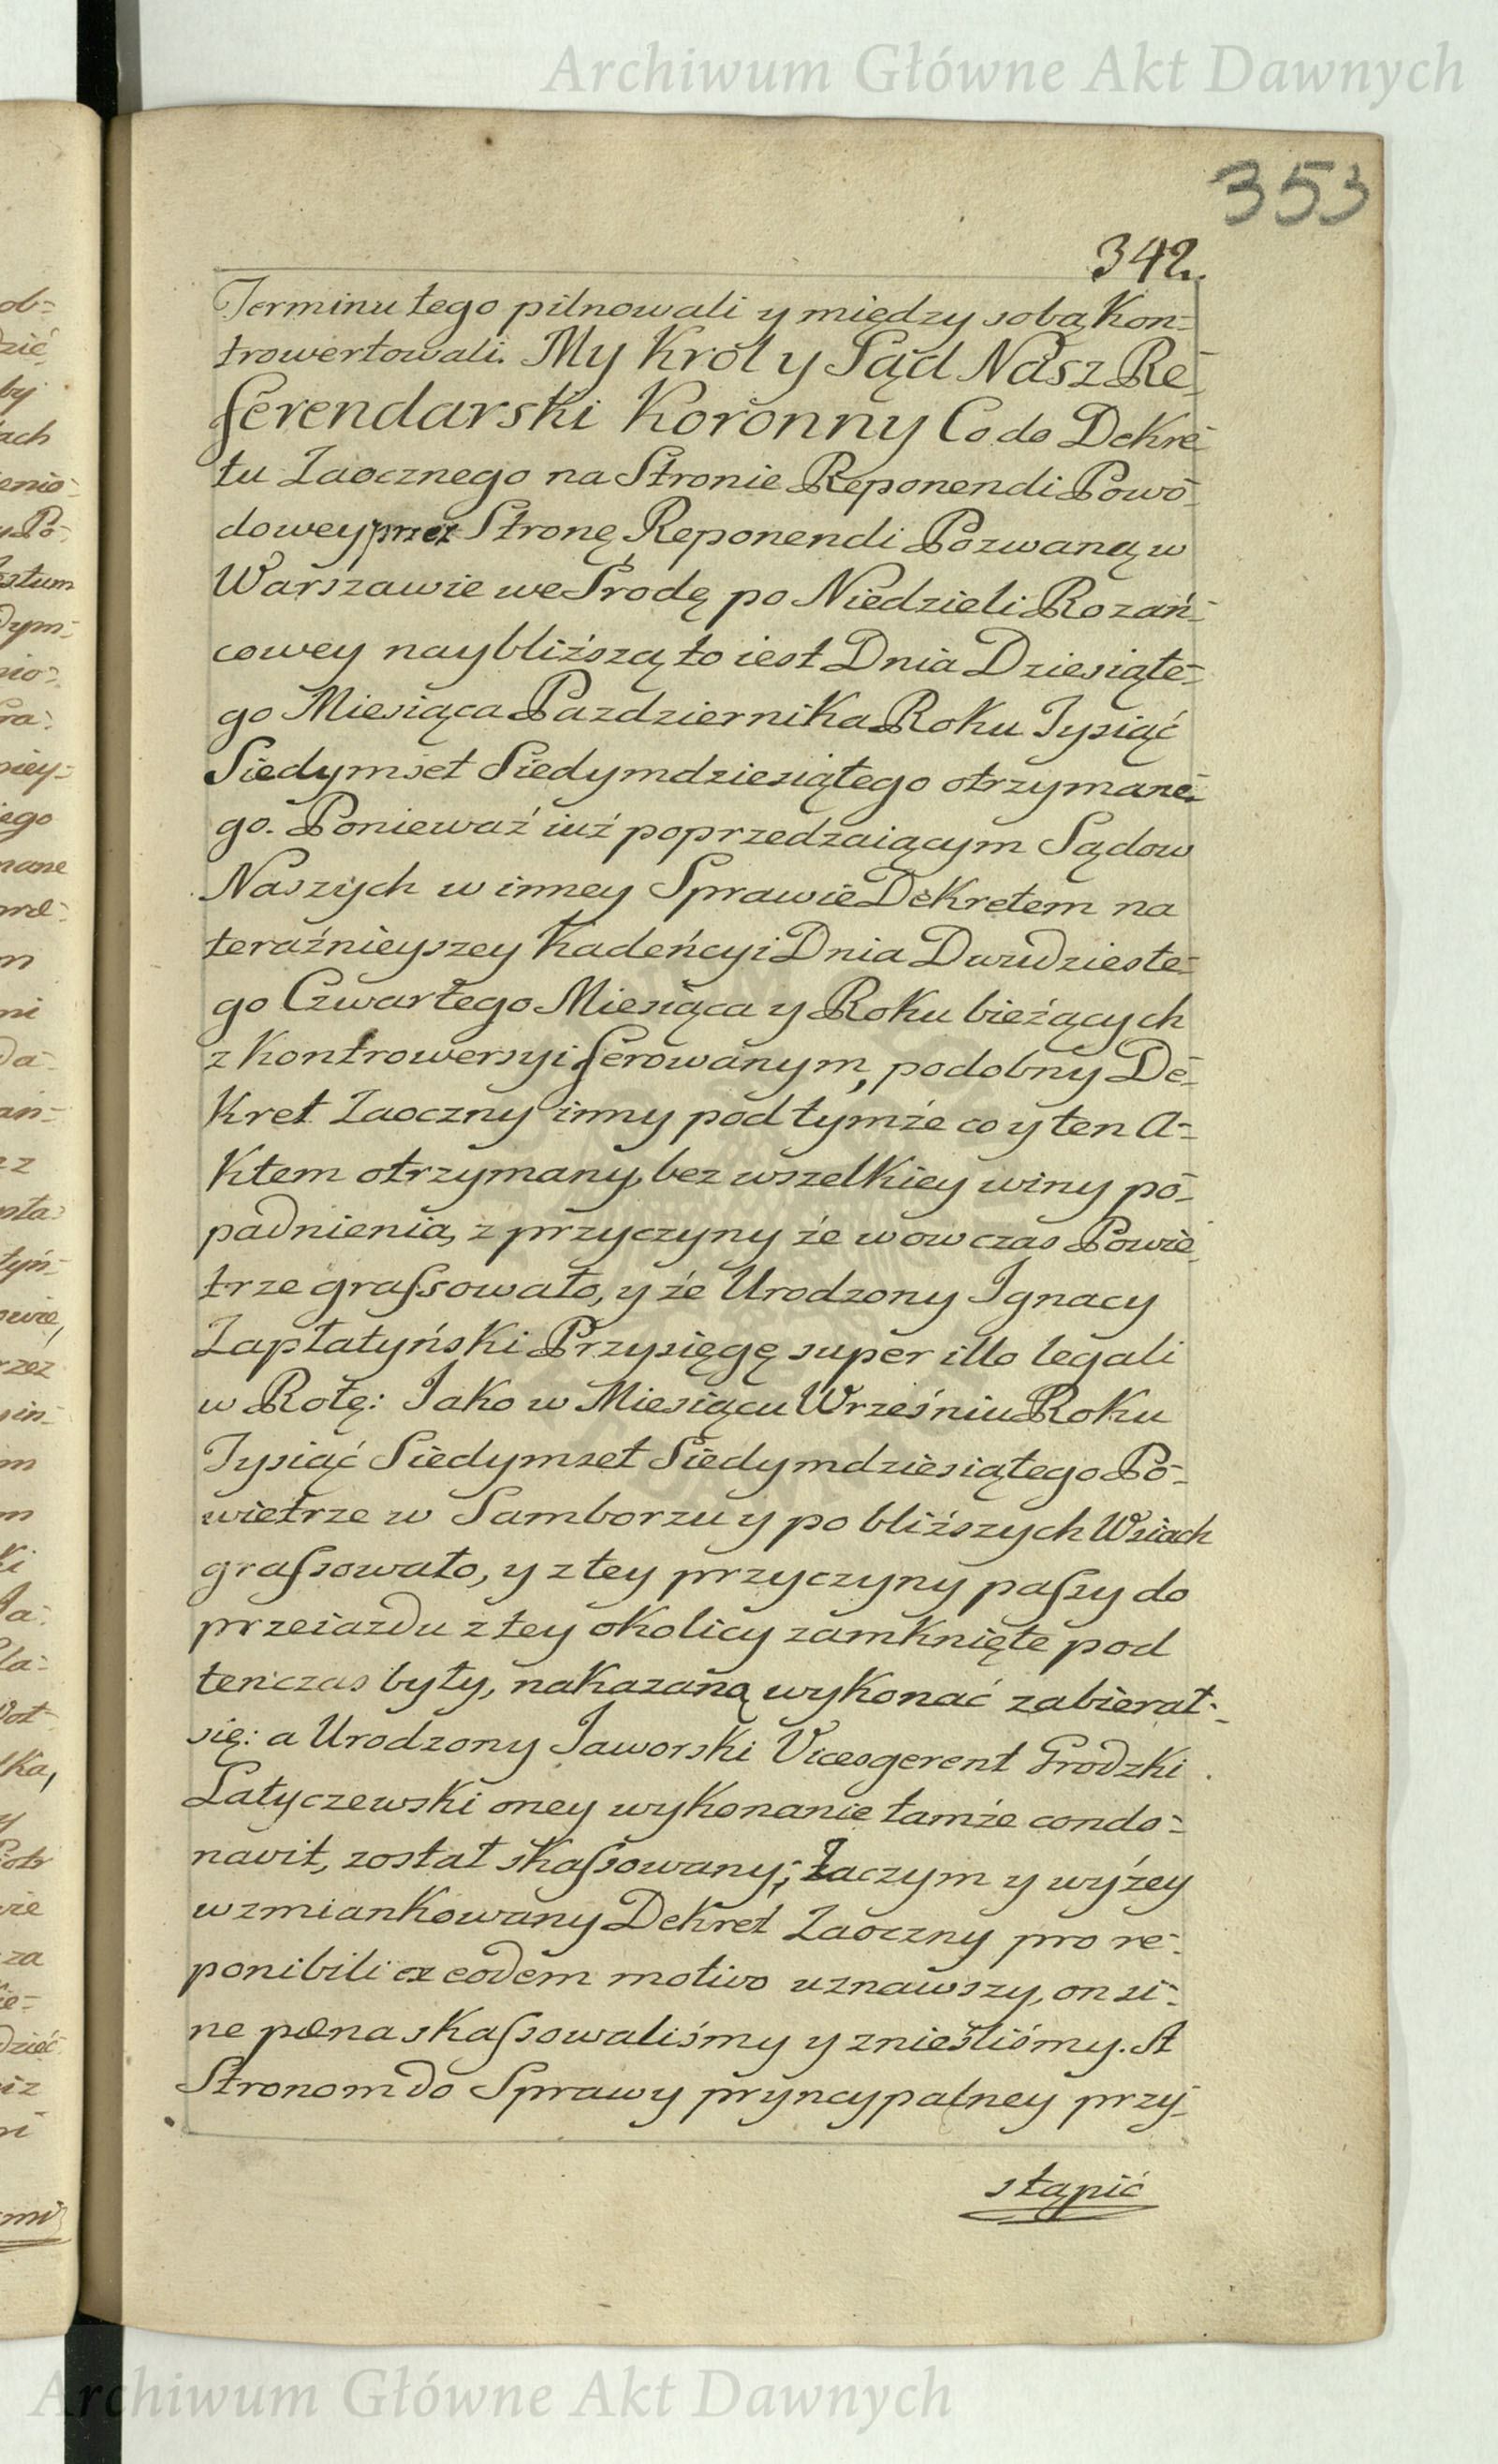 Archiwum Główne Akt Dawnych
353
342.
Terminu tego pilnowali y między sobą Kon=
trowertowali. My Krol y Sąd Nasz Re=
ferendarski Koronny Co do Dekre=
tu Zaocznego na Stronie Reponendi Powo=
dowey przez Stronę Reponendi Pozwaną w
Warszawie we Srodę po Niedzieli Rozań=
cowey naybliższą to iest Dnia Dziesiąte=
go Miesiąca Pazdziernika Roku Tysiąć
Siedymset Siedymdziesiątego otrzymane=
go. Ponieważ iuż poprzedzaiącym Sądow
Naszych w inney Sprawie Dekretem na
teraźnieyszey Kadeńcyi Dnia Dwudzieste=
go Czwartego Miesiąca y Roku bieżących
z Kontrowersyi ferowanym, podobny De=
Kret Zaoczny inny pod tymże co y ten A=
Ktem otrzymany, bez wszelkiey winy po=
padnienia, z przyczyny że wowczas Powie=
trze graſsowało, y że Urodzony Ignacy
Zapłatyński Przysięgę super illo legali
w Rotę: Jako w Miesiącu Wrześniu Roku
Tysiąć Siedymset Siedymdziesiątego Po=
wietrze w Samborzu y po bliższych Wsiach
graſsowało, y z tey przyczyny paſsy do
przeiazdu z tey okolicy zamknięte pod
tenczas były, nakazaną wykonać zabierał=
się: a Urodzony Jaworski Vicesgerent Grodzki
Latyczewski oney wykonanie tamże condo=
navit, został skaſsowany; Zaczym y wyżey
wzmiankowany Dekret Zaoczny pro re=
ponibili ex eodem motivo uznawszy, on si=
ne pœna skaſsowaliśmy y znieśliśmy. A
Stronom do Sprawy pryncypalney przy=
stąpić
Archiwum Główne Akt Dawnych